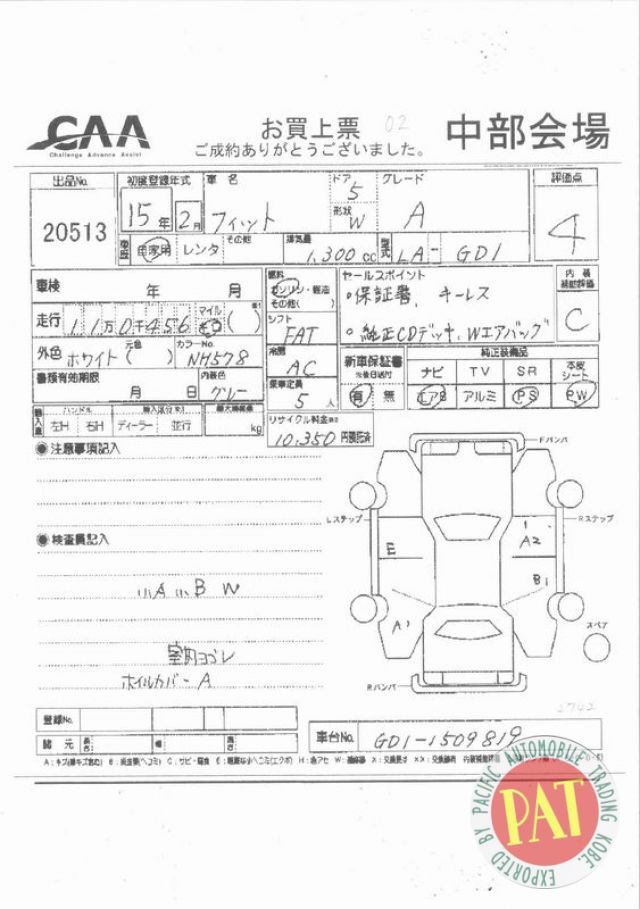 CAA
Challenge Advance Assist
お買上票 02
ご成約ありがとうございました。
中部会場
出品No. 20513
初度登録年式 15年 2月
車名 フィット
ドア 5
形状 W
グレード A
評価点 4
車歴 自家用 レンタ その他
排気量 1,300 cc
型式 LA- GD1
車検 年 月
走行 11万0千456 マイル キロ ( )
外色 ホワイト 元色 ( )
カラーNo. NH578
書類有効期限 月 日
内装色 グレー
輸入車 ハンドル 左H 右H
ディーラー 並行
最大積載量 kg
燃料 ガソリン・軽油 その他( )
シフト FAT
冷房 AC
乗車定員 5人
リサイクル料金 10,350 円預託済
セールスポイント
・保証書、キーレス
・純正CDデッキ、Wエアバッグ
内装補助評価 C
新車保証書 ※後日送付 有 無
純正装備品
ナビ TV SR 本皮シート
エアB アルミ PS PW
◉注意事項記入
◉検査員記入
小A 小B W
室内ヨゴレ
ホイルカバーA
Fバンパ
Lステップ
Rステップ
E
A2
B1
A1
スペア
Rバンパ
2742
登録No.
諸元 長さ 幅 高さ
車台No. GD1-1509819
EXPORTED BY PACIFIC AUTOMOBILE TRADING KOBE.
PAT